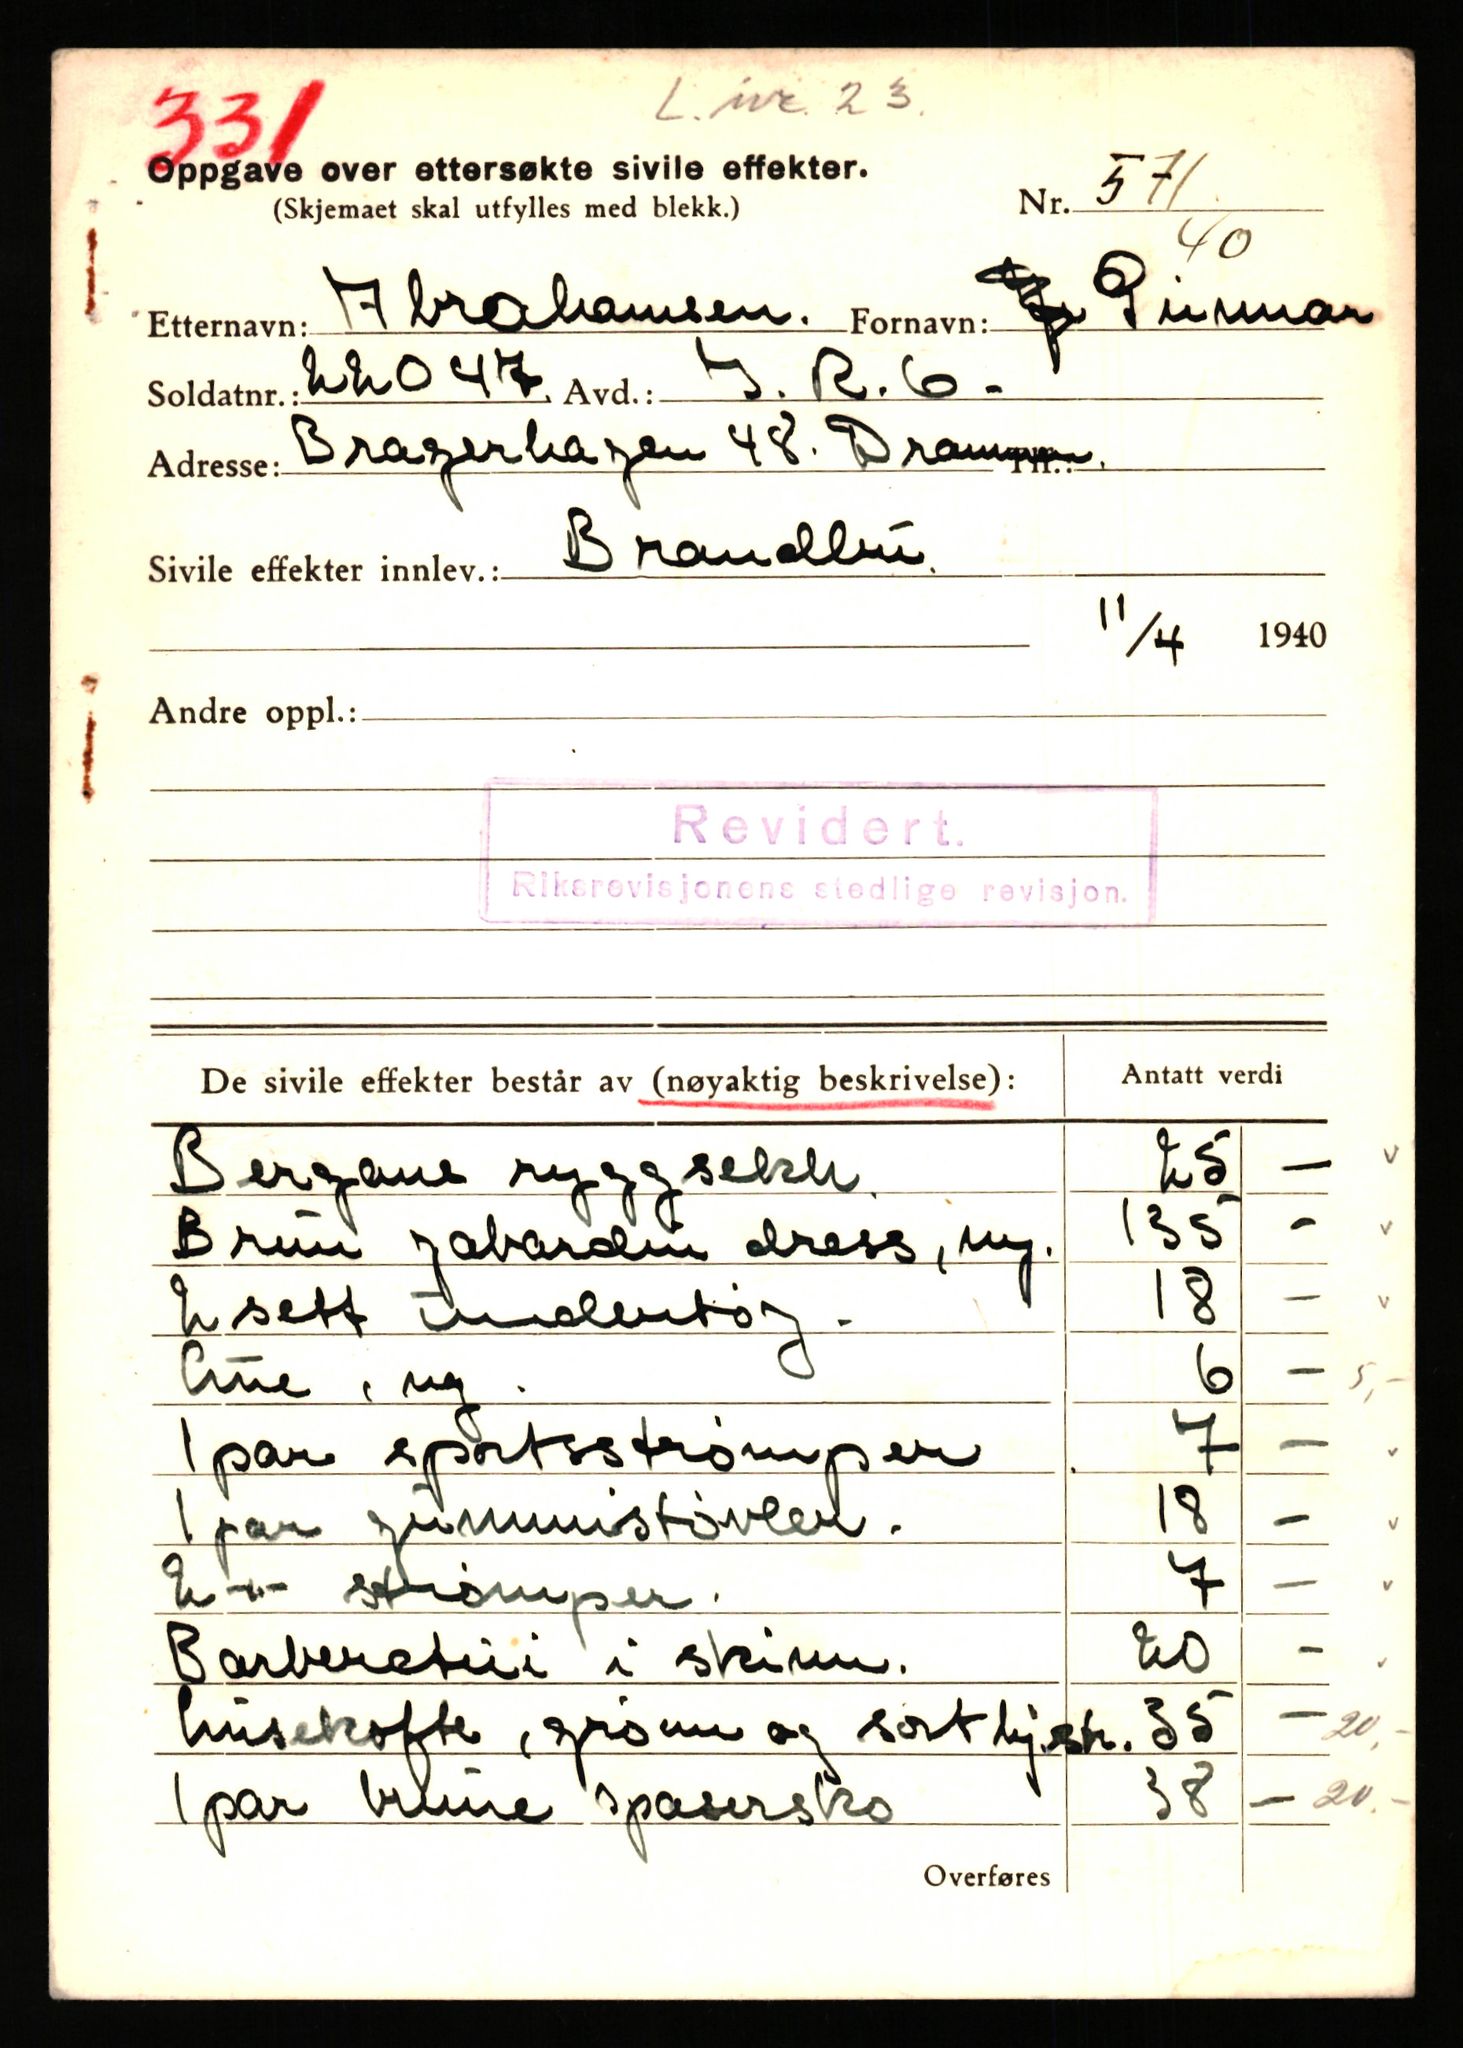 331
L. nr. 23.
Oppgave over ettersøkte sivile effekter.
(Skjemaet skal utfylles med blekk.)
Nr. 571
40
Etternavn: Abrahamsen. Fornavn: Gunnar
Soldatnr.: 22047. Avd.: I. R. 6 -
Adresse: Bragerhagen 48. Drammen.
Sivile effekter innlev.: Brandbu.
11/4 1940
Andre oppl.:
Revidert.
Riksrevisjonens stedlige revisjon.
De sivile effekter består av (nøyaktig beskrivelse): Antatt verdi
Bergans ryggsekk. 25 —
Brun gabardin dress, ny. 135 -
2 sett undertøy. 18 —
Lue, ny. 6 — 5,-
1 par sportsstrømper 7 —
1 par gummistøvler. 18 —
2 -"- strømper. 7 —
Barberetui i skinn. 20 —
Lusekofte, grønn og sort hj.str. 35 — 20,-
1 par brune spasersko 38 — 20.-
Overføres